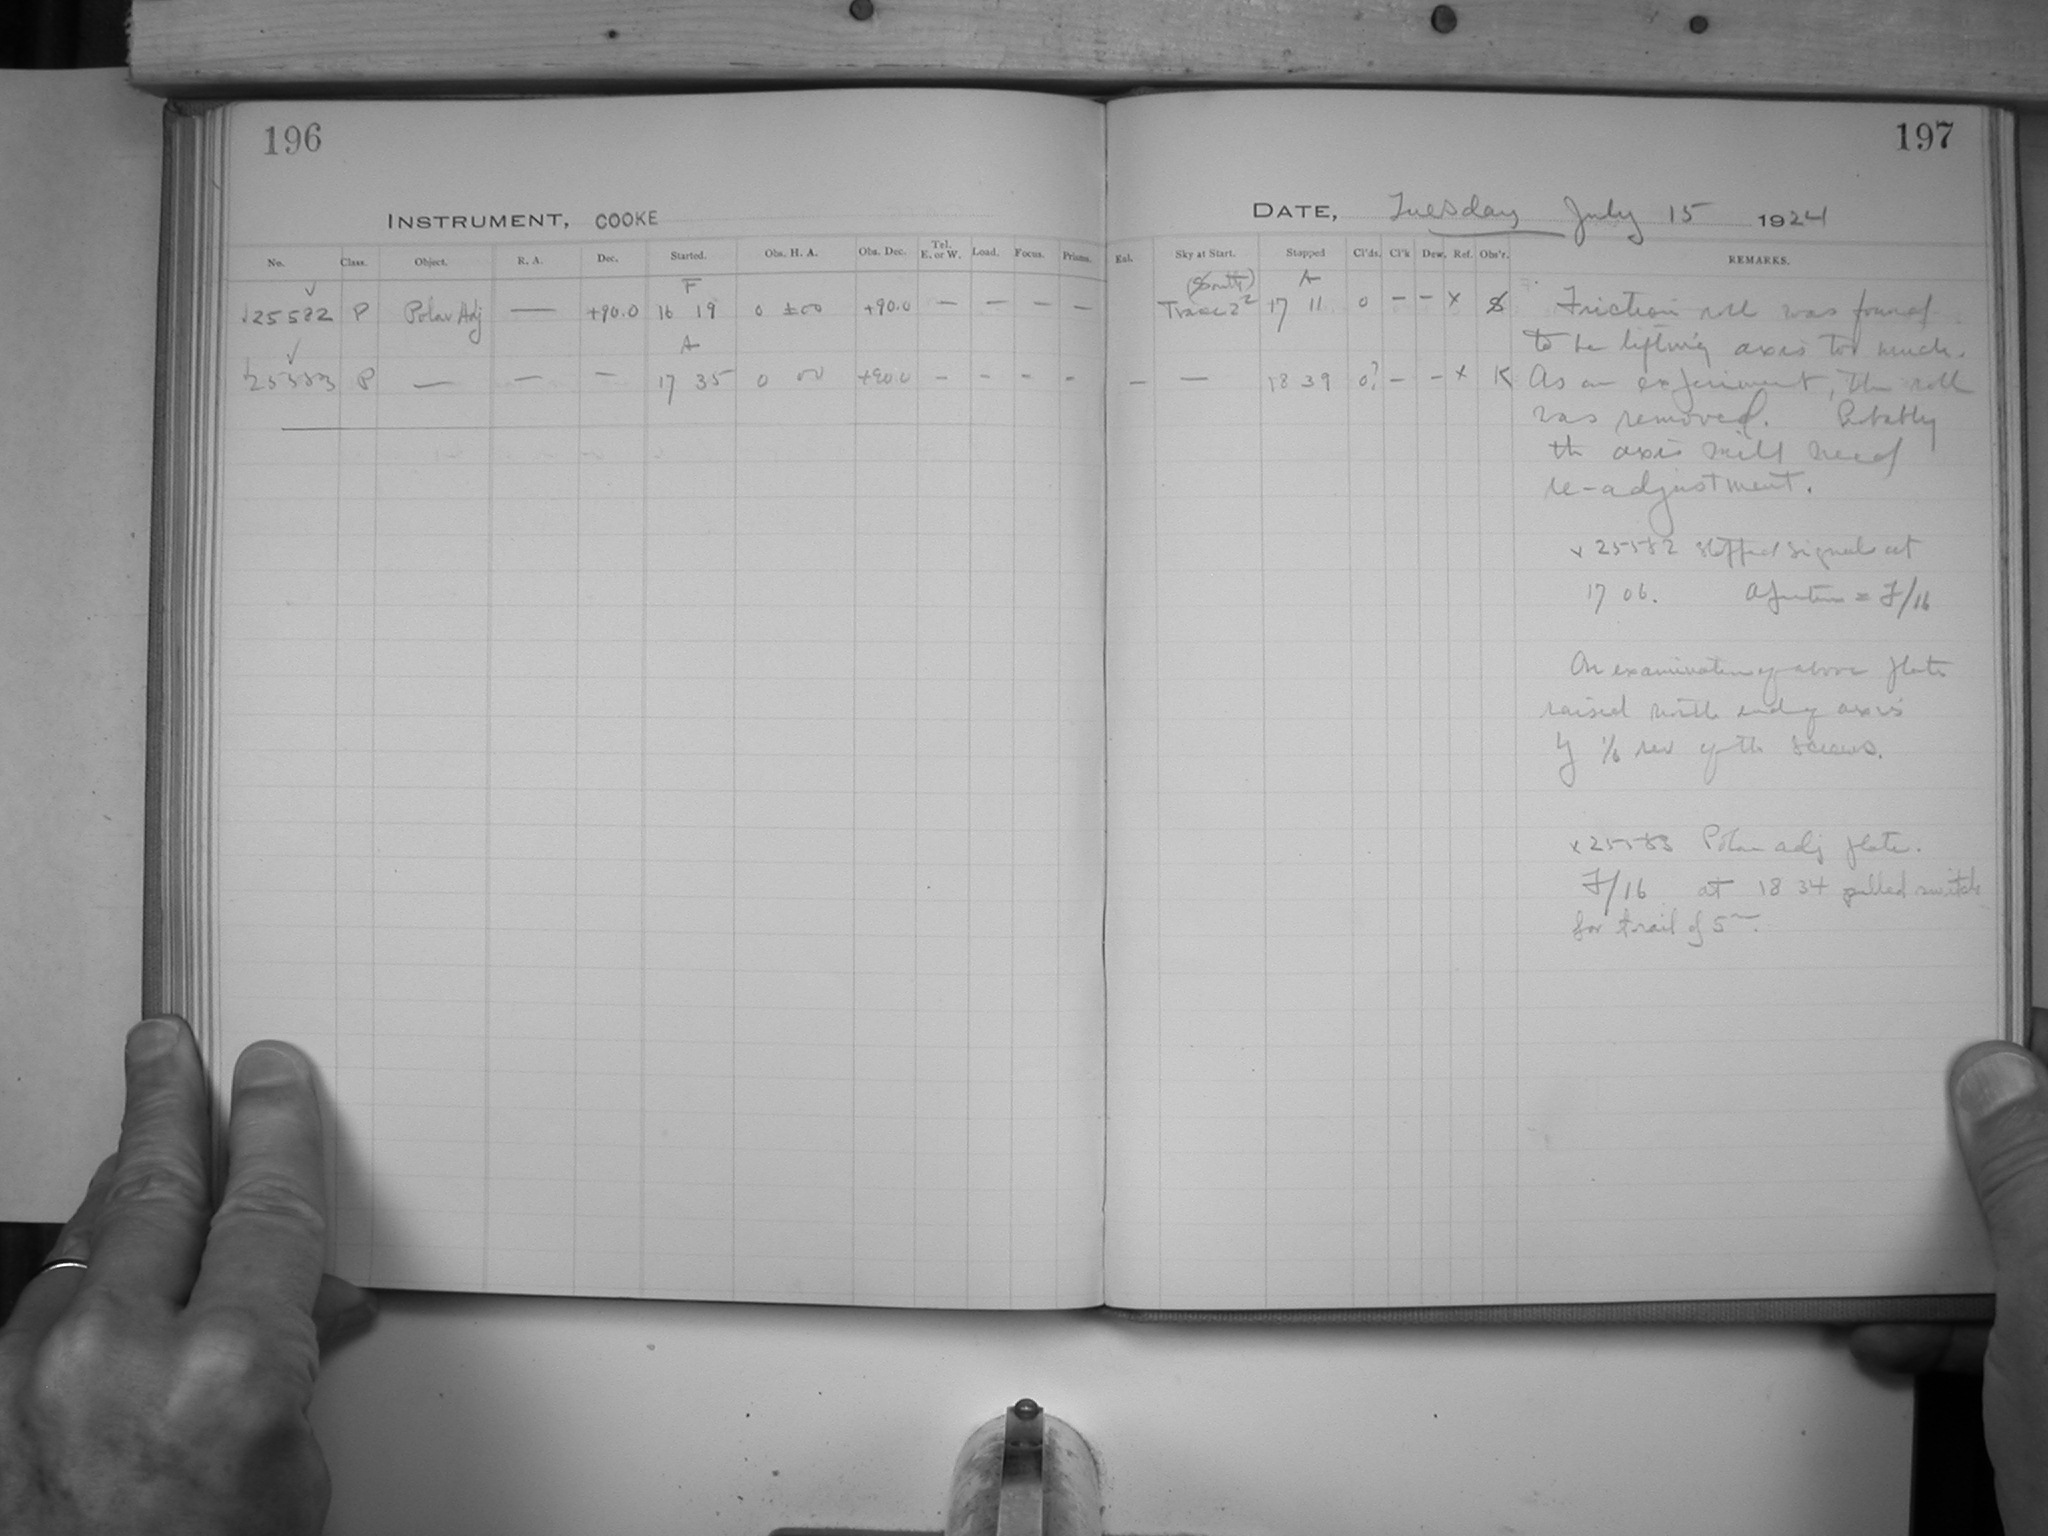 196
INSTRUMENT, COOKE
No. Class. Object. R. A. Dec. Started. Obs. H. A. Obs. Dec. Tel. E. or W. Load. Focus. Prisms.
F
25582 P Polar Adj — +90.0 16 19 0 ±00 +90.0 — — — —
A
25583 P — — — 17 35 0 00 +90.0 - - - -
197
DATE, Tuesday July 15 1924
Exl. Sky at Start. Stopped Cl'ds. Cl'k Dew. Ref. Obs'r. REMARKS.
(South) A
Traces 2² 17 11 0 - - x S Friction roll was found
to be lifting axis too much.
— — 18 39 0? - - x K As an experiment, the roll
was removed. Probably
the axis will need
re-adjustment.
x 25582 stopped signals at
17 06. Aperture = F/16
On examination of above plate
raised north end of axis
by 1/6 rev of the screws.
x 25583 Polar adj plate.
F/16 at 18 34 pulled switch
for trail of 5m.